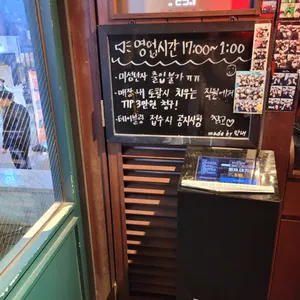 영업시간 17:00~1:00
• 미성년자 출입불가 ㅠㅠ
• 매장 내 토할시 치우는 직원에게
TIP 3만원 청구!
• 테이블링 접수 시 공지사항
참고♡
made by